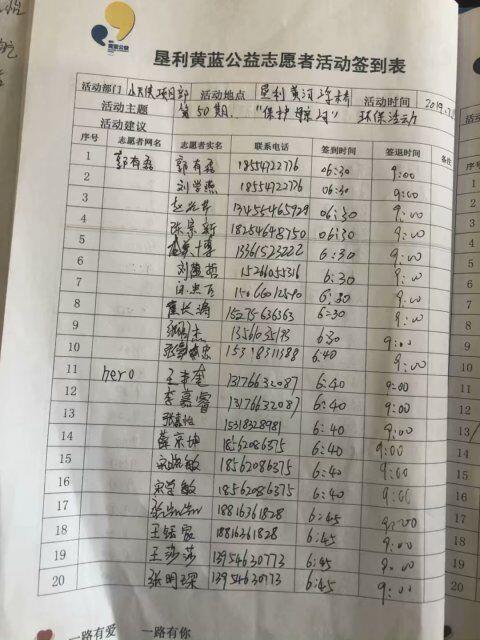 黄蓝公益
垦利黄蓝公益志愿者活动签到表
活动部门 项目部 活动地点 垦利黄河 活动时间 2019.
活动主题 第50期. "保护母亲河" 环保活动
活动建议
序号 志愿者网名 志愿者实名 联系电话 签到时间 签退时间 备注
1 郭有磊 郭有磊 18554722776 06:30 9:00
2 刘学燕 18554722776 06:30 9:00
3 13455465929 06:30 9:00
4 张宗新 18254648750 06:30 9:00
5 13361523222 6:30 9:00
6 刘 哲 15266051316 6:30 9:00
7 6:30 9:00
8 崔长海 15275636363 6:30 9:00
9 6:30 9:00
10 15318311388 6:40 9:00
11 hero 13176632087 6:40 9:00
12 李嘉睿 13176632087 6:40 9:00
13 15318328981 6:40 9:00
14 薛宗坤 18562086375 6:40 9:00
15 敏 18562086375 6:40 9:00
16 宋学敏 18562086375 6:40 9:00
17 18816361828 6:45 9:00
18 王钰家 18816361828 6:45 9:00
19 王莎莎 13954630773 6:45 9:00
20 张明琛 13954630773 6:45 9:00
一路有爱 一路有你